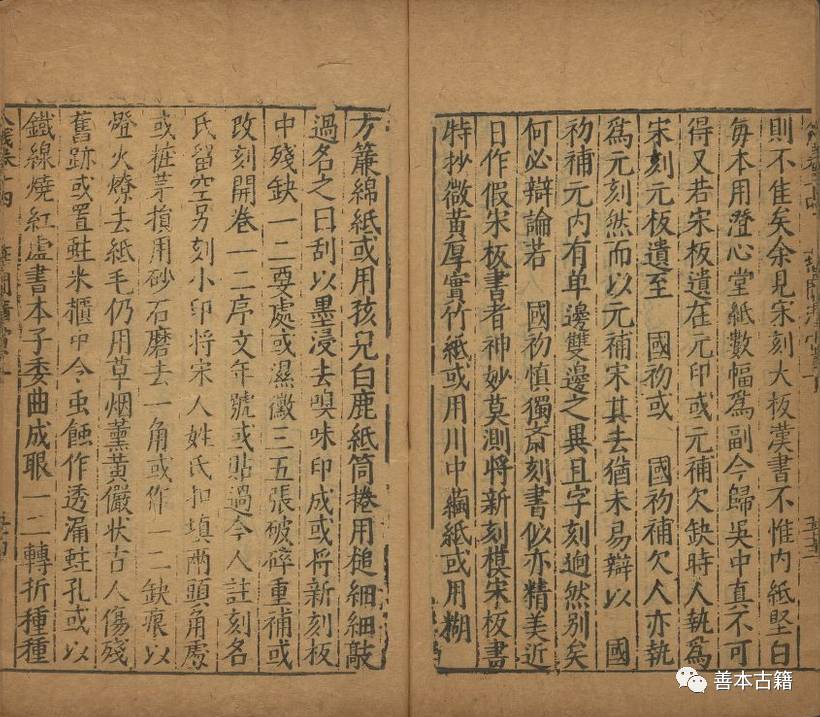 則不佳矣余見宋刻大板漢書不惟內紙堅白
每本用澄心堂紙數幅爲副今歸吳中真不可
得又若宋板遺在元印或元補欠缺時人執爲
宋刻元板遺至 國初或 國初補欠人亦執
爲元刻然而以元補宋其去猶未易辯以 國
初補元內有单邊雙邊之異且字刻逈然別矣
何必辯論若 國初慎獨齋刻書似亦精美近
日作假宋板書者神妙莫測將新刻模宋板書
特抄微黃厚實竹紙或用川中繭紙或用糊
方簾綿紙或用孩兒白鹿紙筒捲用槌細細敲
過名之曰刮以墨浸去嗅味印成或將新刻板
中殘缺一二要處或濕黴三五張破碎重補或
改刻開卷一二序文年號或貼過今人註刻名
氏留空另刻小印將宋人姓氏扣填兩頭角處
或粧茅損用砂石磨去一角或作一二缺痕以
燈火燎去紙毛仍用草烟薰黃儼狀古人傷殘
舊跡或置蛀米櫃中令虫蝕作透漏蛀孔或以
鐵線燒紅虛書本子委曲成眼一二轉折種種
善本古籍